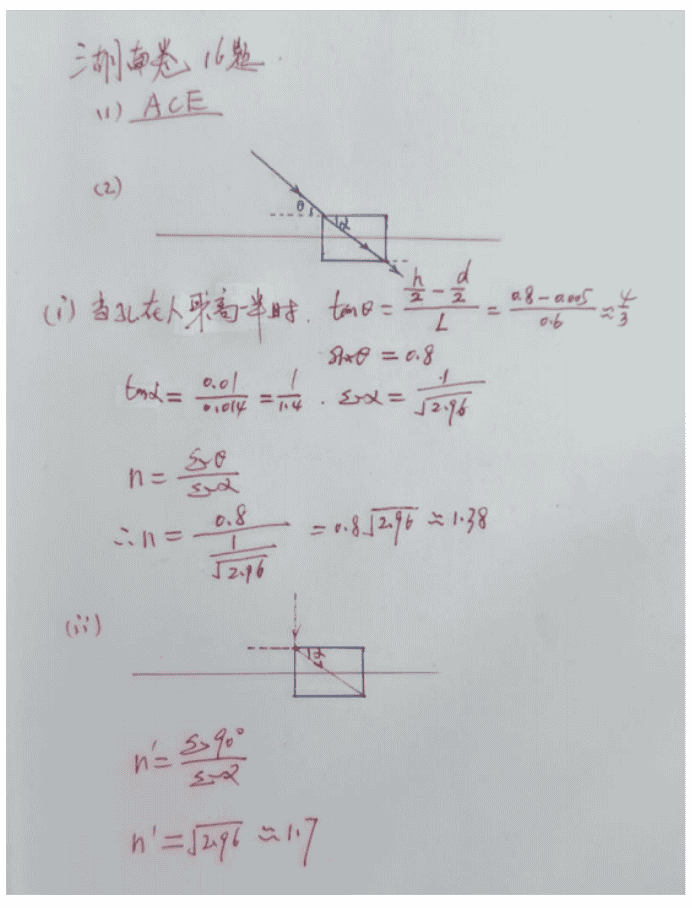 湖南卷 16题.
(1) ACE
(2)
θ
α
(i) 当孔在人身高一半时. tanθ = (h/2 - d/2)/L = (0.8-0.005)/0.6 ≈ 4/3
sinθ = 0.8
tanα = 0.01/0.014 = 1/1.4 . sinα = 1/√2.96
n = sinθ/sinα
∴ n = 0.8/(1/√2.96) = 0.8√2.96 ≈ 1.38
(ii)
α
n' = sin90°/sinα
n' = √2.96 ≈ 1.7